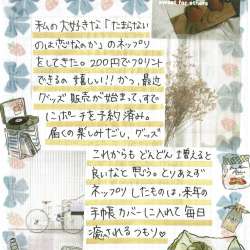 sweet for others
私の大好きな「たまらない
のは恋なのか」のネップリ
をしてきた。200円でプリント
できるの嬉しい!!かつ、最近
グッズ販売が始まって、すで
にポーチを予約済み。
届くの楽しみだし、グッズ
これからもどんどん増えると
良いなと思う。とりあえず
ネップリしたものは、来年の
手帳カバーに入れて毎日
癒されるつもり♡